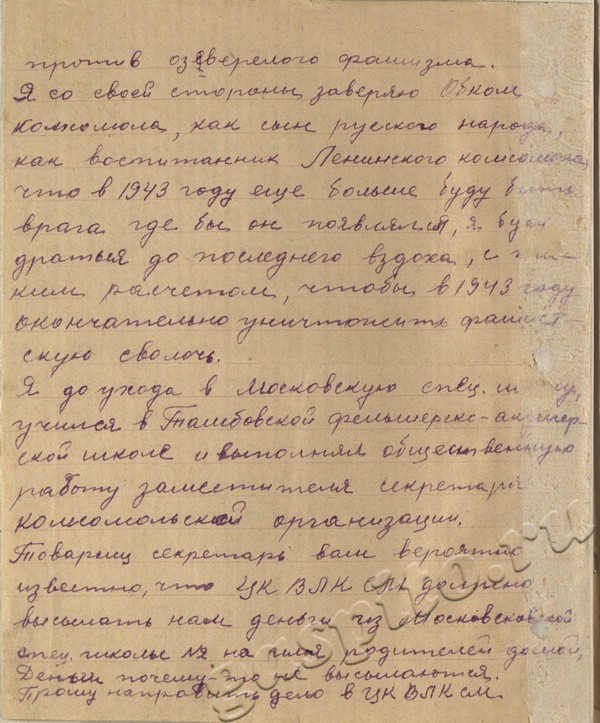 против озверелого фашизма.
Я со своей стороны заверяю Обком
комсомола, как сын русского народа,
как воспитанник Ленинского комсомола
что в 1943 году еще больше буду бить
врага где бы он появлялся, я буду
драться до последнего вздоха, с та-
ким расчетом, чтобы в 1943 году
окончательно уничтожить фашист-
скую сволочь.
Я до ухода в Московскую спец. школу,
учился в Тамбовской фельшерско-акушер-
ской школе и выполнял общественную
работу заместителя секретаря
комсомольской организации.
Товарищ секретарь вам вероятно
известно, что ЦК ВЛКСМ должно
высылать нам деньги из Московской
спец. школы № на имя родителей домой,
Деньги почему-то не высылаются.
Прошу направить дело в ЦК ВЛКСМ.
gaspiko.ru